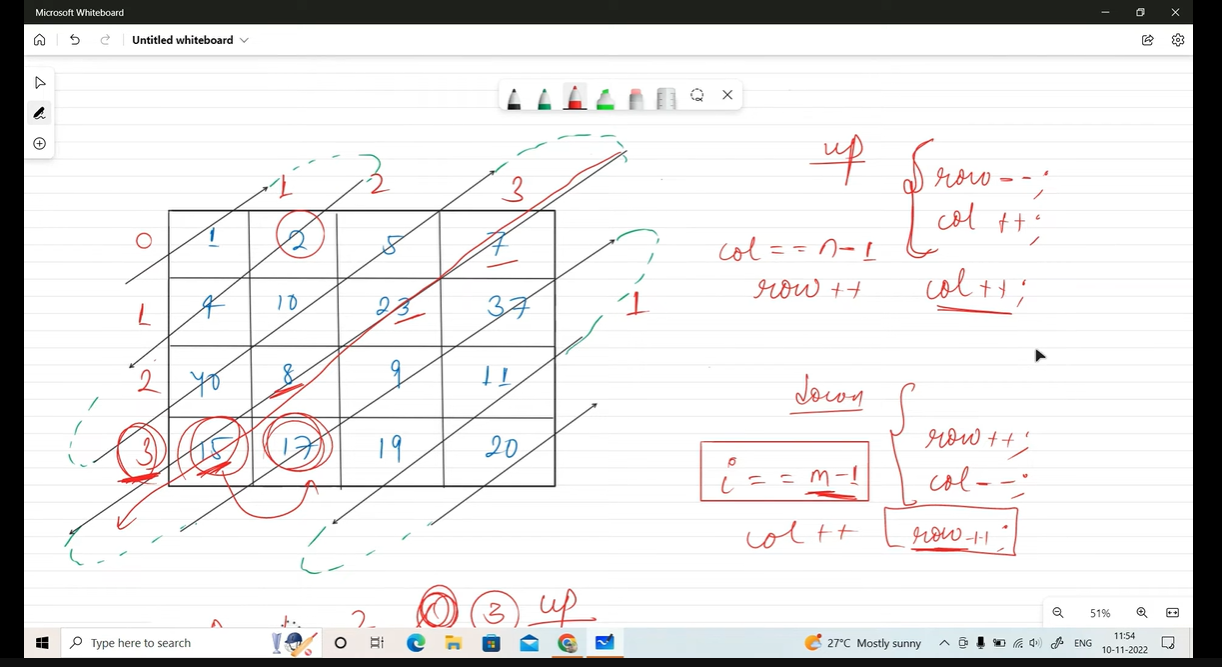 Microsoft Whiteboard
Untitled whiteboard
1 2 3
0 1 2 5 7
1 9 10 23 37 1
2 40 8 9 11
3 15 17 19 20
up
row--;
col ++;
col == n-1
row ++ col ++;
down
row ++;
i == m-1 col--;
col ++ row++;
0 3 up
51%
Type here to search
27°C Mostly sunny
ENG
11:54
10-11-2022